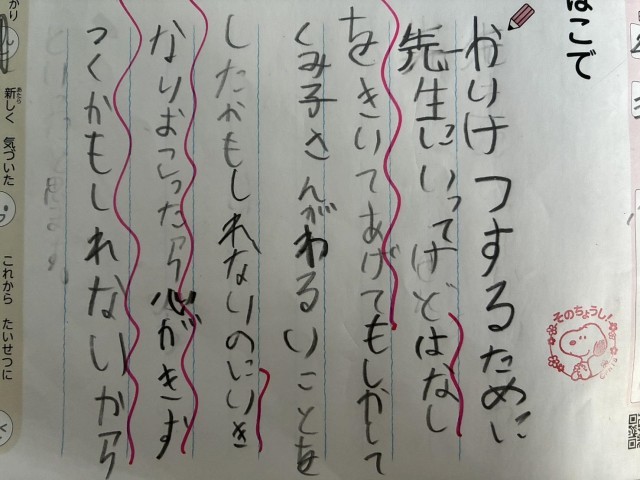 はこで
かいけつするために
先生にいってけどはなし
をきいてあげてもしかして
くみ子さんがわるいことを
したかもしれないのにいき
なりおこったら心がきず
つくかもしれないから
そのちょうし!
新しく 気づいた
あたら
これから たいせつに